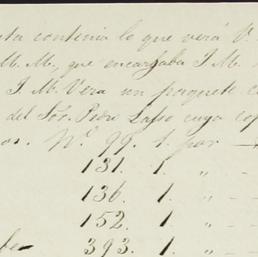 ta contenia lo que verá V.
M. M., que encargaba J. M.
J. M. Vera un paquete
del Sor. Pedro Lasso cuya
os. N.º 99. 1. por —
131. 1. " - -
136. 1. " - -
152. 1. " - -
393. 1. " - -